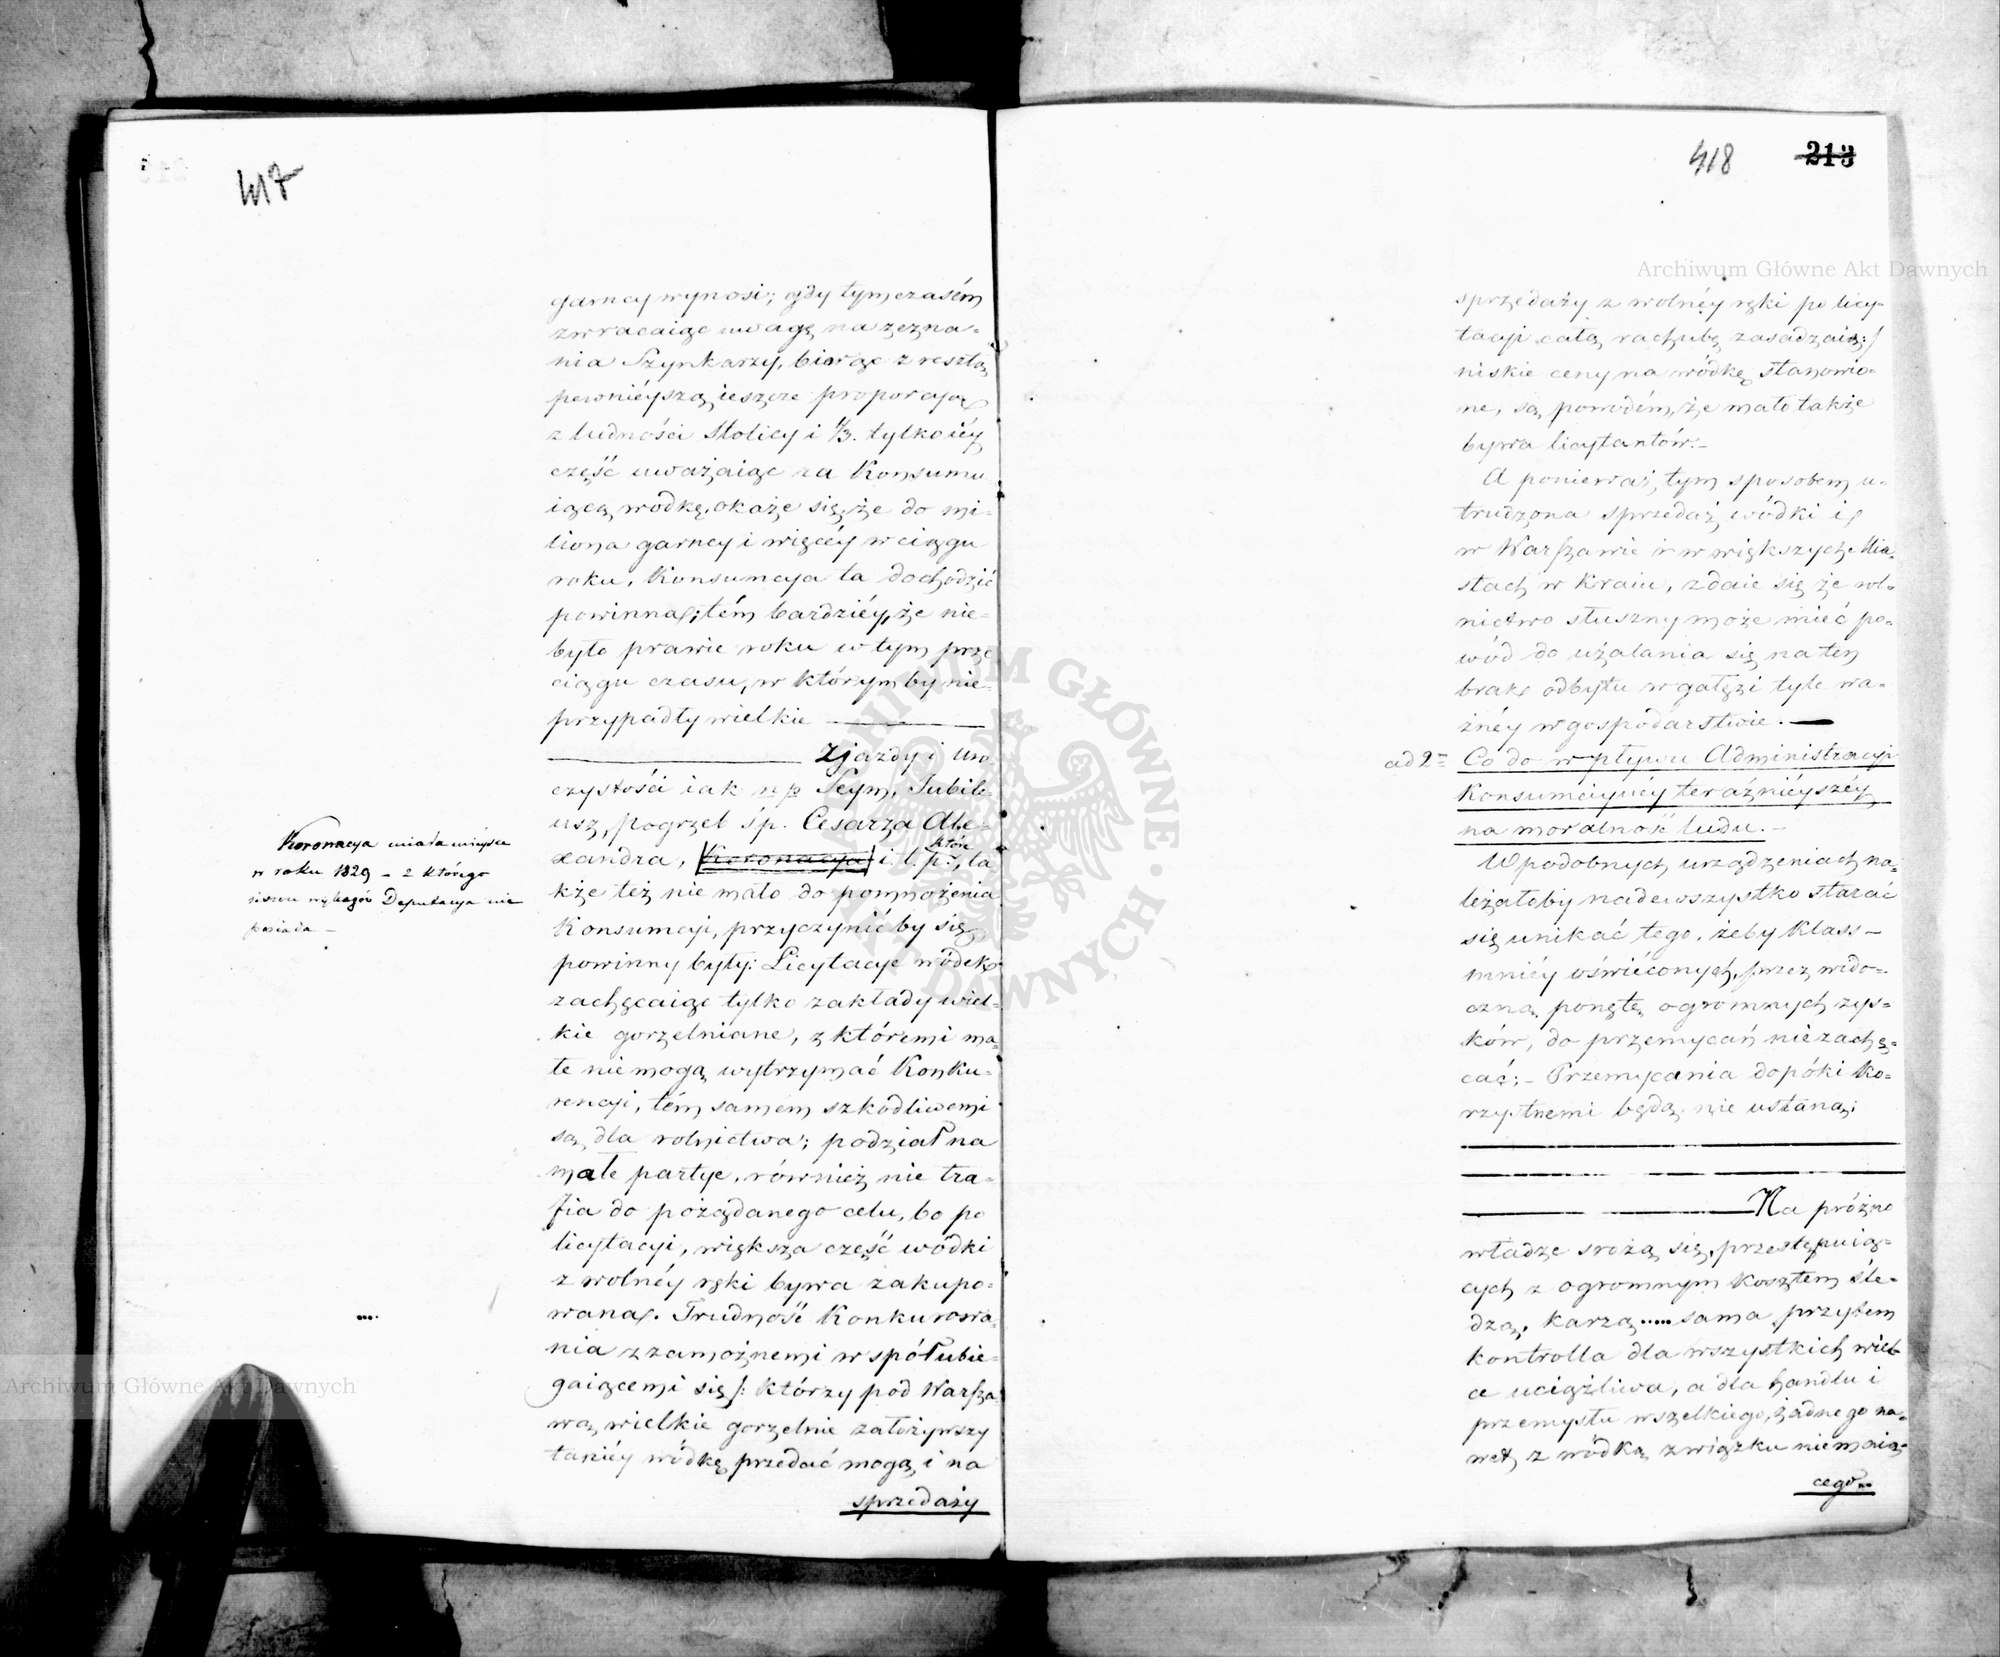 417
garncy wynosi; gdy tymczasém
zwracaiąc uwagę na zezna-
nia Szynkarzy, biorąc z resztą
pewniéyszą ieszcze proporcyą
z ludności Stolicy i 1/3. tylko iéy
część uważaiąc za Konsumu
iącą wódkę, okaże się, że do mi-
liona garncy i więcéy w ciągu
roku, Konsumcya ta dochodzić
powinna; tém bardziéy, że nie-
było prawie roku w tym prze
ciągu czasu, w którym by nie-
przypadły wielkie
Zjazdy i uro-
czystości iak np Seym, Jubile-
usz, pogrzeb śp. Cesarza Ale-
xandra, Koronacya i. t. p., które ta
kże też nie mało do pomnożenia
Konsumcyi, przyczynić by się
powinny były: Licytacye wódek
zachęcaiąc tylko zakłady wiel-
kie gorzelniane, z któremi ma-
łe nie mogą wytrzymać Konku-
rencyi, tém samem szkodliwemi
są dla rolnictwa; podział na
małe partye, również nie tra-
fia do pożądanego celu, bo po
licytacyi, większa część wódki
z wolnéy ręki bywa zakupo-
wana. Trudność Konkurowa-
nia z zamożnemi w spółubie-
gaiącemi się /: którzy pod Warsza
wą wielkie gorzelnie założywszy
taniéy wódkę przedać mogą, i na
sprzedaży
Koronacya miała miéysce
w roku 1829 – z którego
ieszcze Deputacya nie
posiada –
418 213
sprzedaży z wolnéy ręki po licy-
tacyi całą rachubę zasadzaią :/
niskie ceny na wódkę stanowio-
ne, są powodém, że mało także
bywa licytantów.–
A ponieważ, tym sposobem u-
trudzona sprzedaż wódki i
w Warszawie i w większych Mia-
stach w Kraiu, zdaie się że rol-
nictwo słuszny może mieć po-
wód do użalania się na ten
brak odbytu w gałęzi tyle wa-
żnéy w gospodarstwie. —
ad 2= Co do wpływu Administracyi
Konsumcyinéy teraźnieyszéy
na moralność ludu.–
W podobnych urządzeniach na-
leżałoby nadewszystko starać
się unikać tego, żeby Klass –
mniéy oświéconych, przez wido-
czną ponętę ogromnych zys-
ków, do przemycań nie zachę-
cać; – Przemycania dopóki Ko-
rzystnemi będą, nie ustaną;
Na próżno
władze srożą się, przestępuią-
cych z ogromnym Kosztem śle-
dzą, Karzą ..... sama przytem
Kontrolla dla wszystkich wiel-
ce uciążliwa, a dla handlu i
przemysłu wszelkiego, żadnego na-
wet z wódką związku niemaią-
cego..
Archiwum Główne Akt Dawnych
Archiwum Główne Akt Dawnych
ARCHIWUM GŁÓWNE AKT DAWNYCH